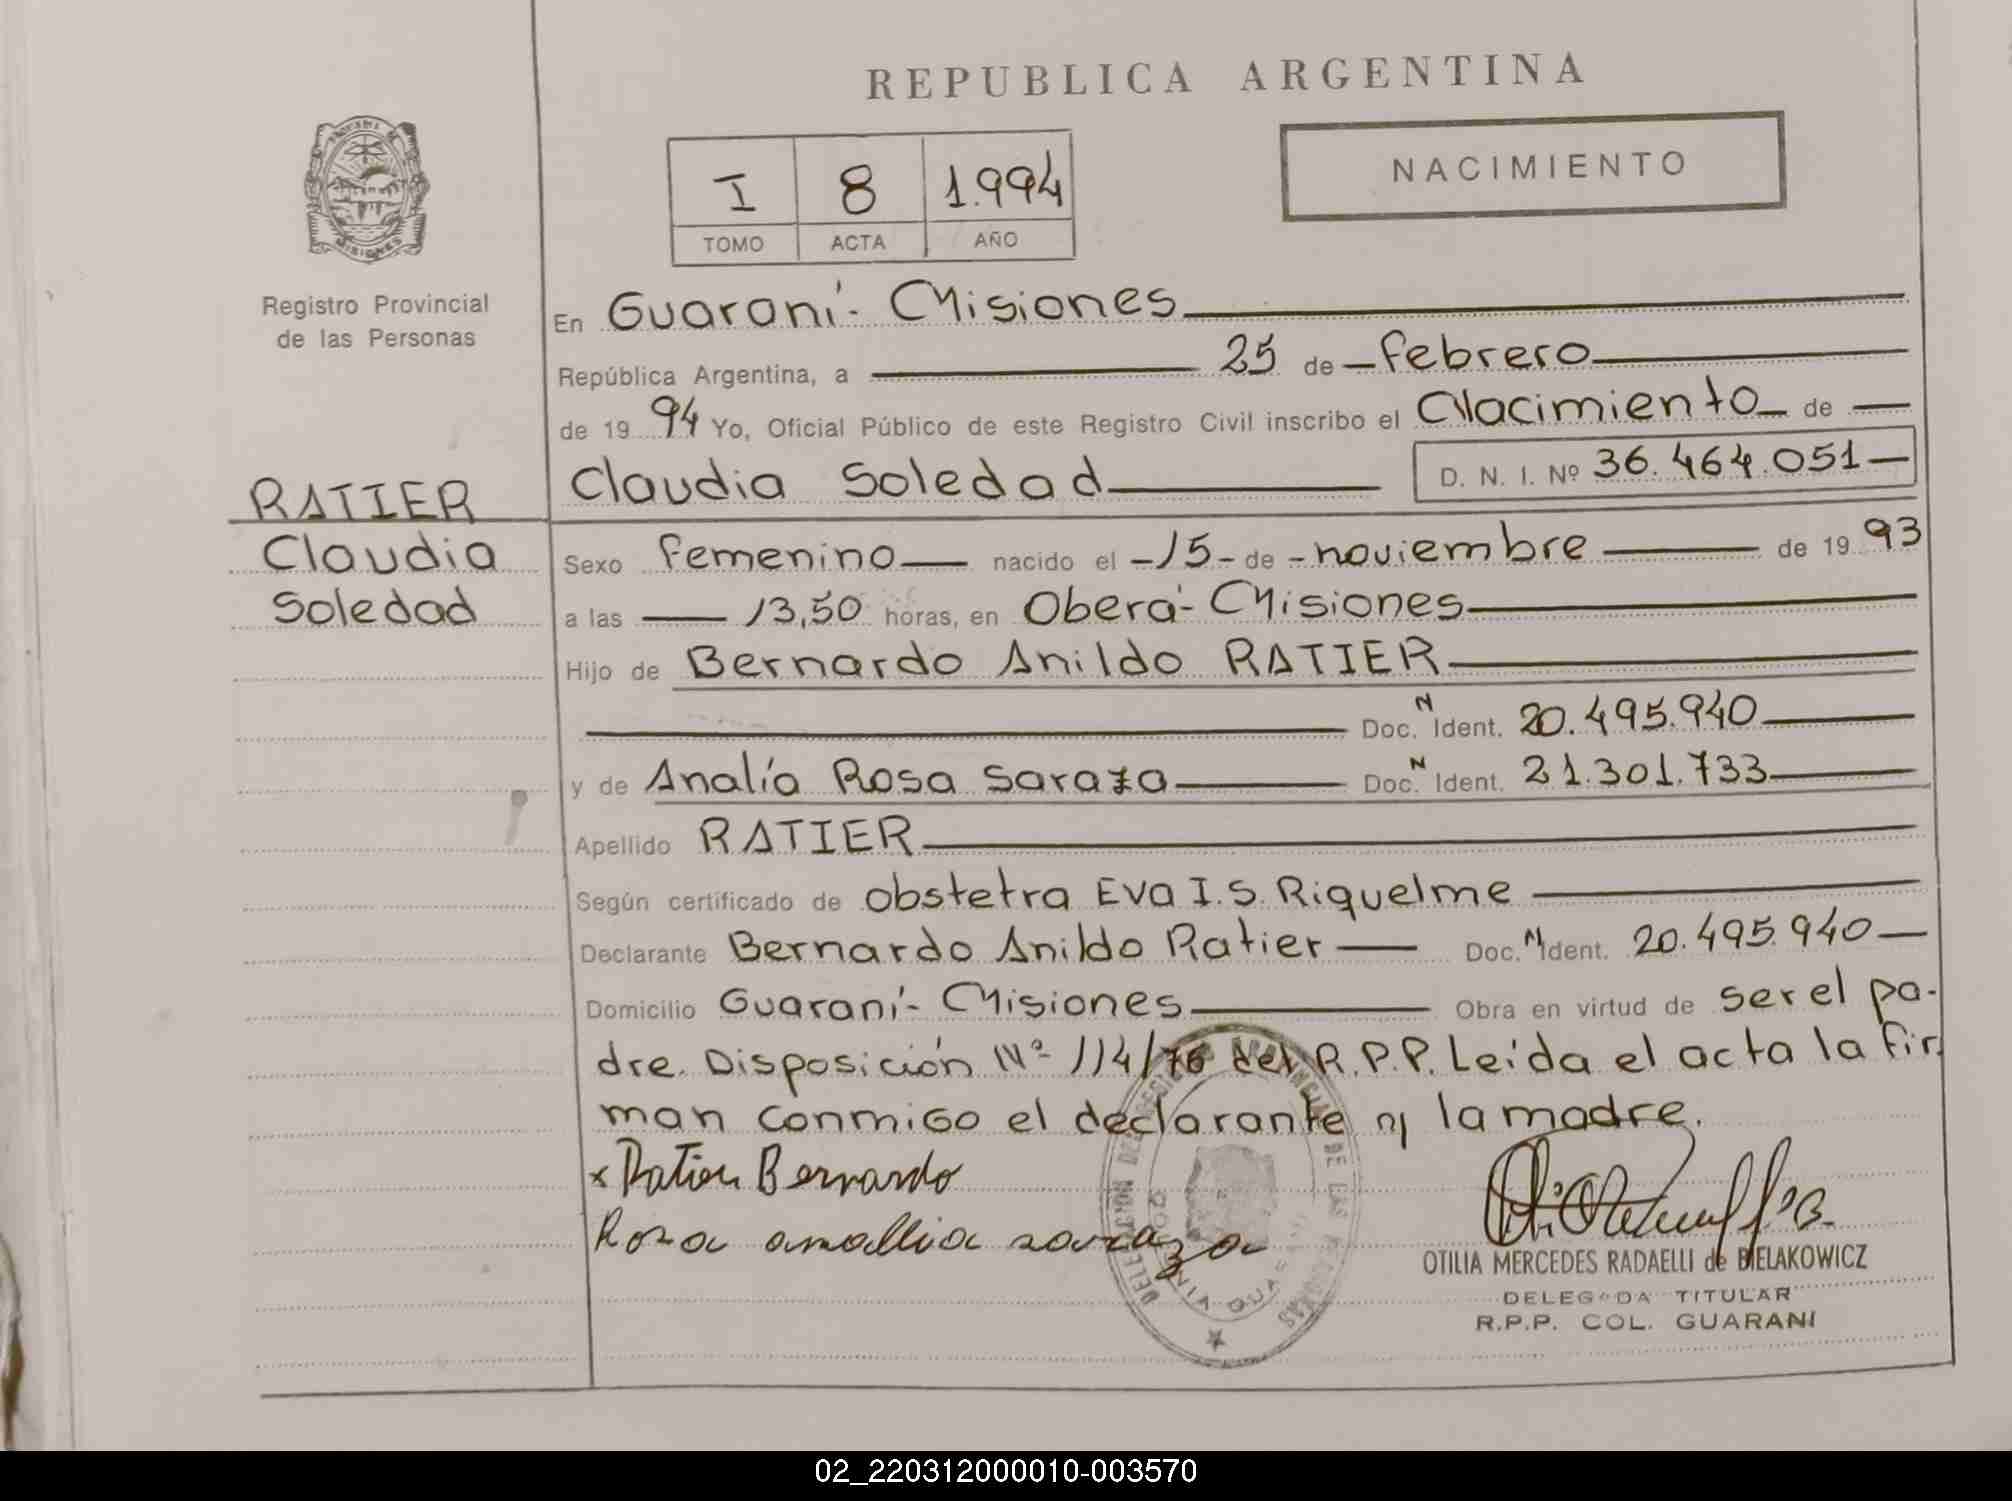 REPUBLICA ARGENTINA
NACIMIENTO
I 8 1.994
TOMO ACTA AÑO
MISIONES
Registro Provincial
de las Personas
RATIER
Claudia
Soledad
En Guaraní - Misiones
República Argentina, a 25 de febrero
de 19 94 Yo, Oficial Público de este Registro Civil inscribo el Nacimiento de
Claudia Soledad D. N. I. Nº 36.464.051
Sexo femenino nacido el -15- de - noviembre de 19 93
a las 13,50 horas, en Oberá - Misiones
Hijo de Bernardo Anildo RATIER
Doc. N Ident. 20.495.940
y de Analía Rosa Saraza Doc. N Ident. 21.301.733
Apellido RATIER
Según certificado de obstetra Eva I. S. Riquelme
Declarante Bernardo Anildo Ratier Doc. N Ident. 20.495.940
Domicilio Guaraní - Misiones Obra en virtud de ser el pa-
dre. Disposición Nº 114/76 del R.P.P. Leída el acta la fir-
man conmigo el declarante y la madre.
x Ratier Bernardo
Rosa anallia saraza
OTILIA MERCEDES RADAELLI de BIELAKOWICZ
DELEGADA TITULAR
R.P.P. COL. GUARANI
02_220312000010-003570